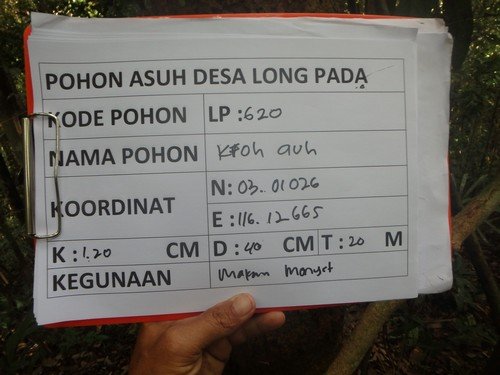 POHON ASUH DESA LONG PADA
KODE POHON LP :620
NAMA POHON auh
KOORDINAT N: 03. 01026
E :116. 12665
K : 1.20 CM D : 40 CM T : 20 M
KEGUNAAN Makan Monyet